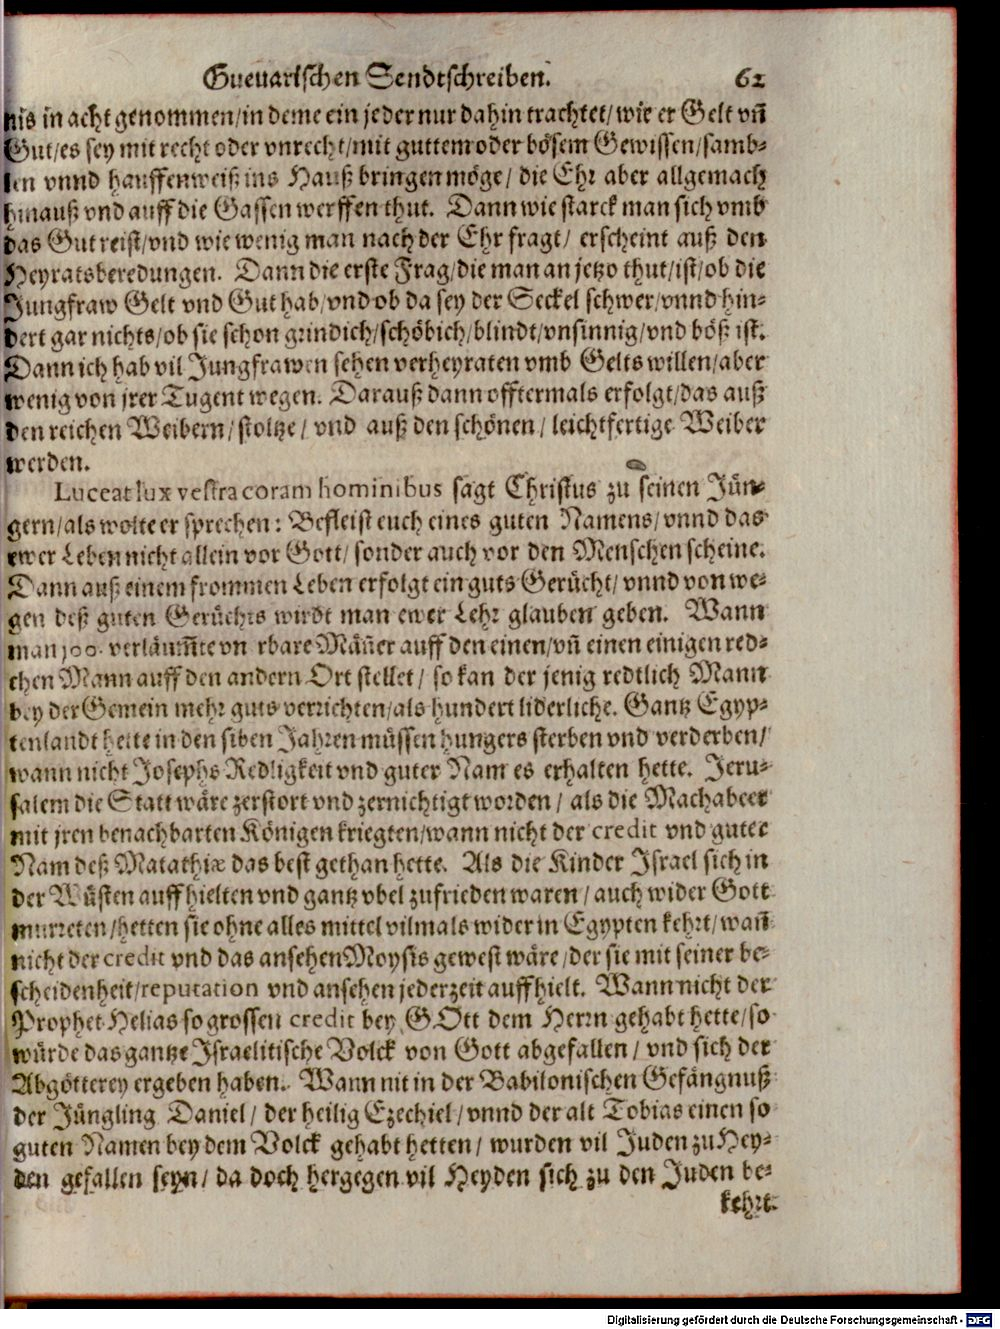 Guevarischen Sendtschreiben. 61
nis in acht genommen/in deme ein jeder nur dahin trachtet/wie er Gelt vñ
Gut/es sey mit recht oder vnrecht/mit guttem oder bösem Gewissen/samb-
len vnnd hauffenweiß ins Hauß bringen möge/ die Ehr aber allgemach
hinauß vnd auff die Gassen werffen thut. Dann wie starck man sich vmb
das Gut reist/vnd wie wenig man nach der Ehr fragt/ erscheint auß den
Heyratsberedungen. Dann die erste Frag/die man an jetzo thut/ist/ob die
Jungfraw Gelt vnd Gut hab/vnd ob da sey der Seckel schwer/vnnd hin-
dert gar nichts/ob sie schon grindich/schöbich/blindt/vnsinnig/vnd böß ist.
Dann ich hab vil Jungfrawen sehen verheyraten vmb Gelts willen/aber
wenig von jrer Tugent wegen. Darauß dann offtermals erfolgt/das auß
den reichen Weibern/stoltze/ vnd auß den schönen/ leichtfertige Weiber
werden.
Luceat lux vestra coram hominibus sagt Christus zu seinen Jün-
gern/als wolte er sprechen: Befleist euch eines guten Namens/vnnd das
ewer Leben nicht allein vor Gott/ sonder auch vor den Menschen scheine.
Dann auß einem frommen Leben erfolgt ein guts Gerücht/ vnnd von we-
gen deß guten Gerüchts wirdt man ewer Lehr glauben geben. Wann
man 100. verläumte vn rbare Mäñer auff den einen/vñ einen einigen red-
chen Mann auff den andern Ort stellet/ so kan der jenig redtlich Mann
bey der Gemein mehr guts verrichten/als hundert liderliche. Gantz Egyp-
tenlandt hette in den siben Jahren müssen hungers sterben vnd verderben/
wann nicht Josephs Redligkeit vnd guter Nam es erhalten hette. Jeru-
salem die Statt wäre zerstört vnd zernichtigt worden/ als die Machabeer
mit jren benachbarten Königen kriegten/wann nicht der credit vnd guter
Nam deß Matathiæ das best gethan hette. Als die Kinder Israel sich in
der Wüsten auffhielten vnd gantz vbel zufrieden waren/ auch wider Gott
murreten/hetten sie ohne alles mittel vilmals wider in Egypten kehrt/wañ
nicht der credit vnd das ansehen Moysis gewest wäre/der sie mit seiner be-
scheidenheit/reputation vnd ansehen jederzeit auffhielt. Wann nicht der
Prophet Helias so grossen credit bey GOtt dem Herrn gehabt hette/so
würde das gantze Israelitische Volck von Gott abgefallen/ vnd sich der
Abgötterey ergeben haben. Wann nit in der Babilonischen Gefängnuß
der Jüngling Daniel/ der heilig Ezechiel/vnnd der alt Tobias einen so
guten Namen bey dem Volck gehabt hetten/ wurden vil Juden zu Hey-
den gefallen seyn/ da doch hergegen vil Heyden sich zu den Juden be-
kehrt.
Digitalisierung gefördert durch die Deutsche Forschungsgemeinschaft - DFG